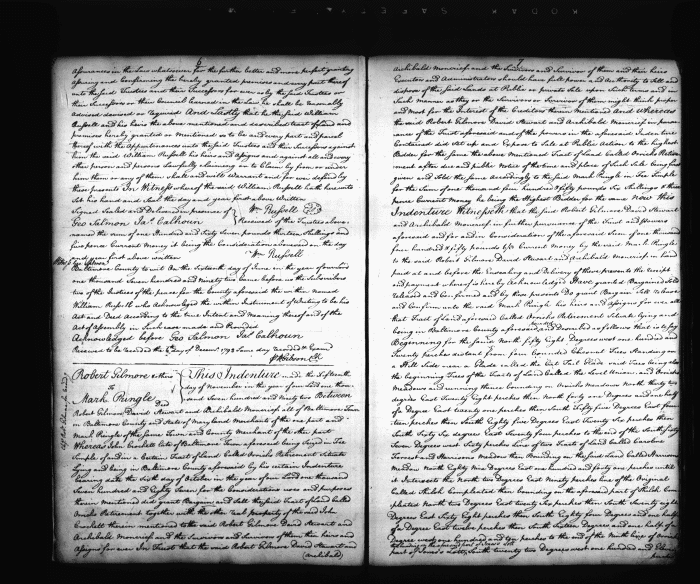 6
Assurances in the Law whatsoever for the further better and more perfect granting
assuring and Confirming the hereby granted premises and every part thereof
unto the said Trustees and their Successors for ever as by the said Trustees or
their Successors or their Council Learned in the Law he shall be reasonably
advised devised or required And Lastly that he the said William
Russell and his heirs the above mentioned lot and
premises hereby granted or mentioned to be and every part and parcel
thereof with the Appurtenances unto the said Trustees and their Successors against
him the said William Russell his heirs and assigns and against all and every
other person and persons Lawfully claiming or to claim by from or under
him them or any of them shall and will Warrant and for ever defend by
these presents In Witness whereof the said William Russell hath hereunto
set his hand and Seal the day and year first above Written
Signed Sealed and Delivered in presence of } Wm Russell
Geo Salmon Jas Calhoun } Received of the Trustees above
named the sum of One Hundred and Sixty Seven pounds thirteen Shillings and
five pence Current Money it being the Consideration above on the day
and year first above written
Wm Russell
Baltimore County to wit On the Sixteenth day of June in the year of our Lord
one thousand Seven hundred and Ninety two came before us the Subscribers
two of the Justices of the peace for the County aforesaid the within named
William Russell who Acknowledged the within Instrument of Writing to be his
Act and Deed According to the true Intent and Meaning thereof and of the
Act of Assembly in Such case made and Provided
Acknowledged before Geo Salmon Jas Calhoun
Received to be recorded the day of December 1792 Same day recorded &
Wm Gibson Clk
Robert Gilmore & others
To
Mark Pringle
Deed
This Indenture made the fifteenth
day of November in the year of our Lord one thou
sand Seven hundred and Ninety two Between
Robert Gilmore David Stewart and Archibald Moncrieff all of Baltimore Town
in Baltimore County and State of Maryland Merchants of the one part and
Mark Pringle of the Same Town and County Merchant of the other part
Whereas John Crockett late of Baltimore Town aforesaid being Seized in Fee
Simple of and in a Certain Tract of Land Called Orricks Retirement Situate
Lying and being in Baltimore County aforesaid by his certain Indenture
bearing date the Sixth day of October in the year of our Lord one thousand
Seven hundred and Eighty Seven for the Considerations uses and purposes
therein mentioned did grant Bargain and Sell the said Tract of Land Called
Orricks Retirement together with the other real property of the said John
Crockett therein mentioned to the said Robert Gilmore David Stewart and
Archibald Moncrieff and the Survivors and Survivor of them their heirs and
Assigns for ever In Trust that the said Robert Gilmore David Stewart and
(Archibald)
7
Archibald Moncrieff and the Survivors and Survivor of them and their heirs
Executors and Administrators should have full power and Authority to Sell and
dispose of the said Lands at Public or private Sale upon Such terms and in
Such Manner as they or the Survivors or Survivor of them might think proper
and most for the Interest of the Creditors therein Mentioned And Whereas
the said Robert Gilmore David Stewart and Archibald Moncrieff in pursu
ance of the Trust aforesaid and of the powers in the aforesaid Indenture
Contained did Set up and Expose to Sale at Public Auction to the highest
Bidder for the Same the above Mentioned Tract of Land Called Orricks Retire
ment after due and public Notice of the time and place of Such Sale being first
given and Sold the Same accordingly to the said Mark Pringle in Fee Simple
for the Sum of one thousand four hundred & fifty pounds Six Shillings & three
pence Current Money he being the Highest Bidder for the Same Now this
Indenture Witnesseth that the said Robert Gilmore David Stewart
and Archibald Moncrieff in further pursuance of the Trust and powers
aforesaid and for and in Consideration of the aforesaid Sum of one thousand
four hundred & fifty pounds 6/3 Current Money by the said Mark Pringle
to the said Robert Gilmore David Stewart and Archibald Moncrieff in hand
paid at and before the Ensealing and Delivery of these presents the receipt
and payment whereof is hereby Acknowledged Have granted Bargained Sold
Released and Confirmed and by these presents Do grant Bargain Sell release
and Confirm unto the said Mark Pringle his heirs and assigns for ever all
that Tract of Land aforesaid Called Orricks Retirement Situate lying and
being in Baltimore County aforesaid and Described as follows that is to say
Beginning for the Same North fifty Eight Degrees West one hundred and
Twenty perches distant from four bounded Chesnut Trees Standing on
a Hill Side near a Glade called the Cat Tail Glade said Trees being also
the beginning Trees of the Tract of Land Called the Land Union and Orricks
Meadows and running thence bounding on Orricks Meadows North thirty two
degrees East Twenty Eight perches then North forty one Degrees and one half
of a Degree East twenty one perches then South Fifty five Degrees East four
teen perches then South Eighty five Degrees East Twenty Six perches then
South Sixty Six degrees East Twenty four perches to the end of the South fifty
Seven Degrees West Sixty perches Line of two Tract of Land Called Caroline
Forrest and Harrisons Meadow then Running on the said Land Called Harrisons
Meadow North Eighty Nine Degrees East one hundred and forty one perches until
it Intersects the North two Degrees East Ninety perches line of the Original
Called Shiloh Compleated then bounding on the aforesaid part of Shiloh Com
pleated North two Degrees East twenty Six perches then South Seventy eight
Degrees East Sixty Eight perches then South Eighty four Degrees and one half
of a Degree East twelve perches then South Sixteen Degrees and one half of a
Degree west one hundred and ten perches to the end of the North line of
part of Jones's Lott, South twenty two degrees West one hundred and Eighty